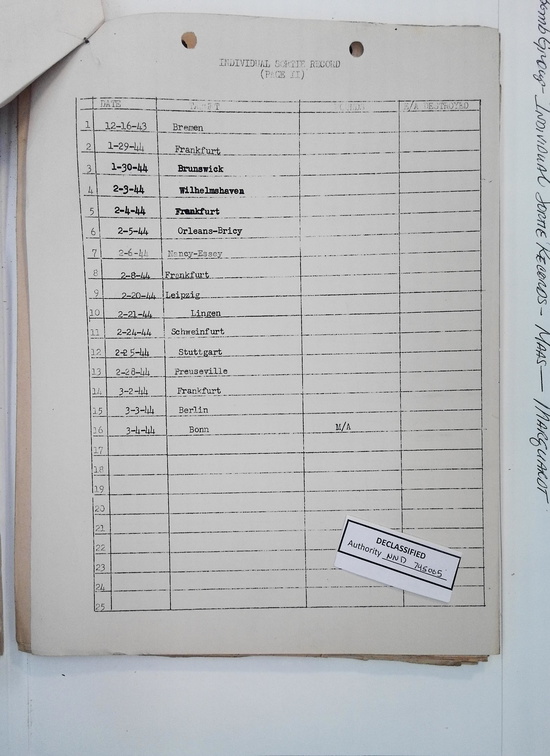 INDIVIDUAL SORTIE RECORD
(PAGE II)
DATE E/A DESTROYED
1 12-16-43 Bremen
2 1-29-44 Frankfurt
3 1-30-44 Brunswick
4 2-3-44 Wilhelmshaven
5 2-4-44 Frankfurt
6 2-5-44 Orleans-Bricy
7 2-6-44 Nancy-Essey
8 2-8-44 Frankfurt
9 2-20-44 Leipzig
10 2-21-44 Lingen
11 2-24-44 Schweinfurt
12 2-25-44 Stuttgart
13 2-28-44 Preuseville
14 3-2-44 Frankfurt
15 3-3-44 Berlin
16 3-4-44 Bonn M/A
17
18
19
20
21
22
23
24
25
DECLASSIFIED
Authority NND 745005
Bomb Group - INDIVIDUAL SORTIE RECORDS - MAAS — MARQUARDT